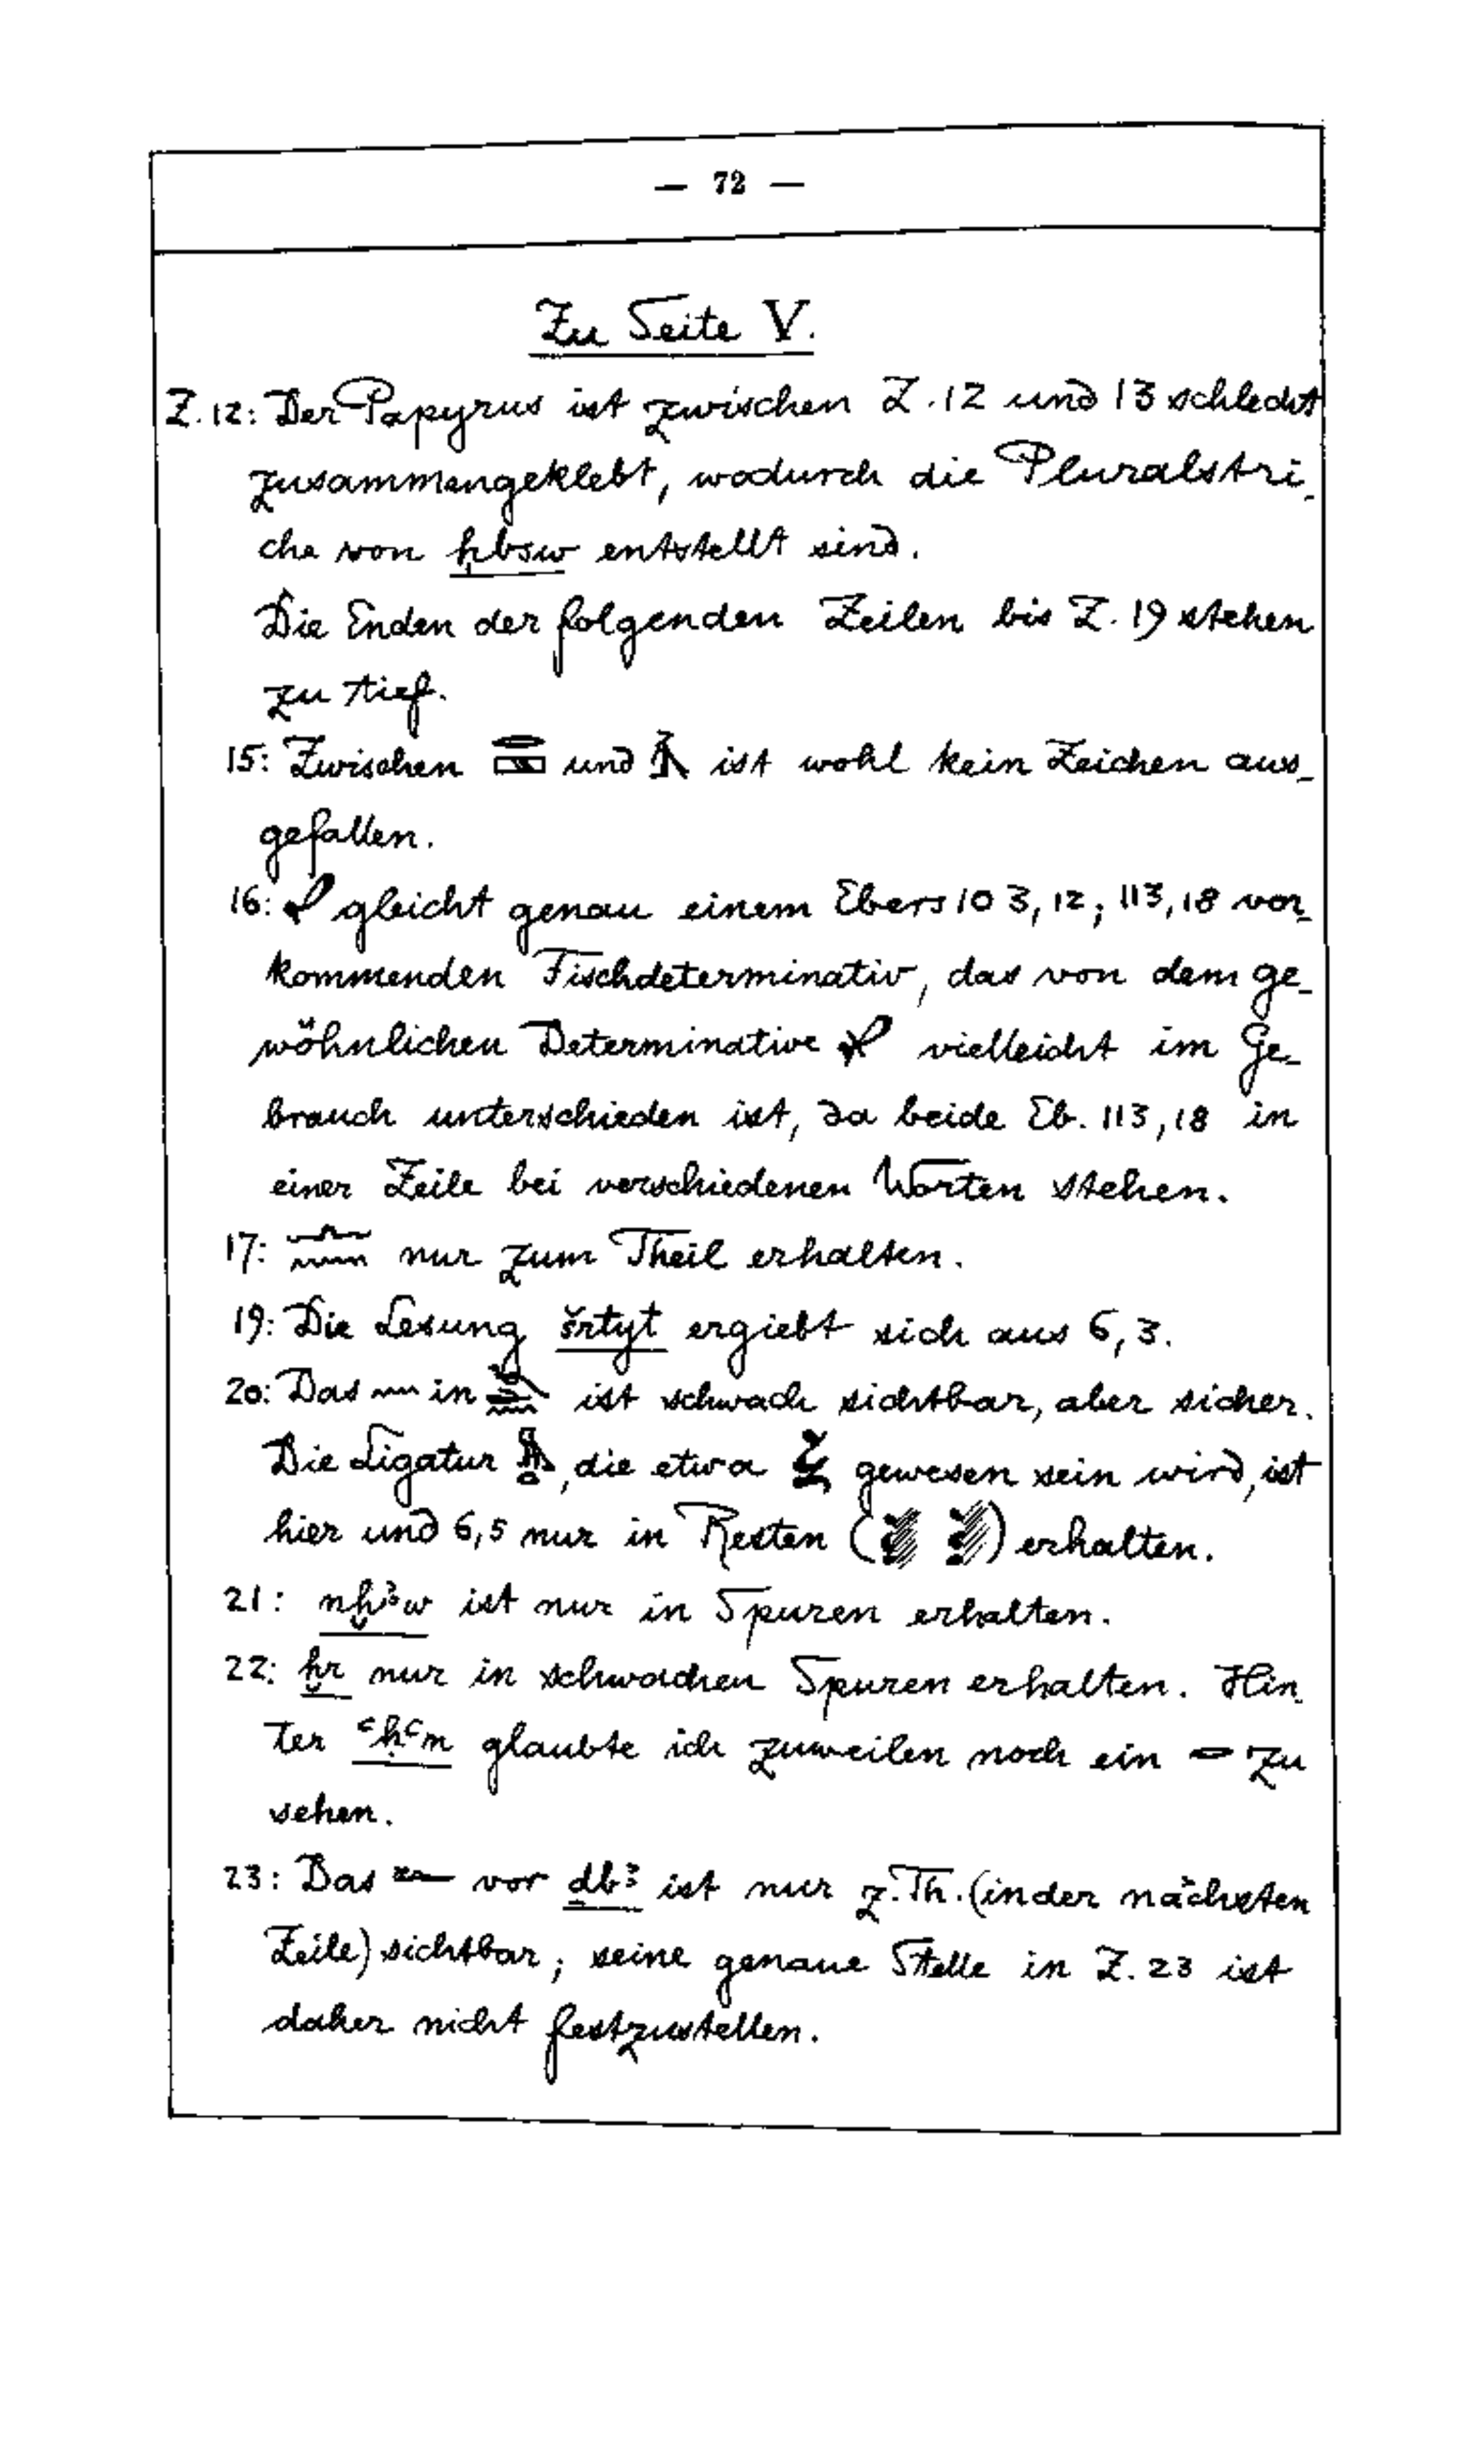 — 72 —
Zu Seite V.
Z. 12: Der Papyrus ist zwischen Z. 12 und 13 schlecht
zusammengeklebt, wodurch die Pluralstri-
che von ḥbsw entstellt sind.
Die Enden der folgenden Zeilen bis Z. 19 stehen
zu tief.
15: Zwischen und ist wohl kein Zeichen aus-
gefallen.
16: gleicht genau einem Ebers 103,12; 113,18 vor-
kommenden Fischdeterminativ, das von dem ge-
wöhnlichen Determinative vielleicht im Ge-
brauch unterschieden ist, da beide Eb. 113,18 in
einer Zeile bei verschiedenen Worten stehen.
17: nur zum Theil erhalten.
19: Die Lesung šrtyt ergiebt sich aus 6,3.
20: Das in ist schwach sichtbar, aber sicher.
Die Ligatur , die etwa gewesen sein wird, ist
hier und 6,5 nur in Resten ( ) erhalten.
21: nḫꜣw ist nur in Spuren erhalten.
22: ḫr nur in schwachen Spuren erhalten. Hin-
ter ꜥḥꜥm glaubte ich zuweilen noch ein zu
sehen.
23: Das vor ḏbꜣ ist nur z. Th. (in der nächsten
Zeile) sichtbar; seine genaue Stelle in Z. 23 ist
daher nicht festzustellen.